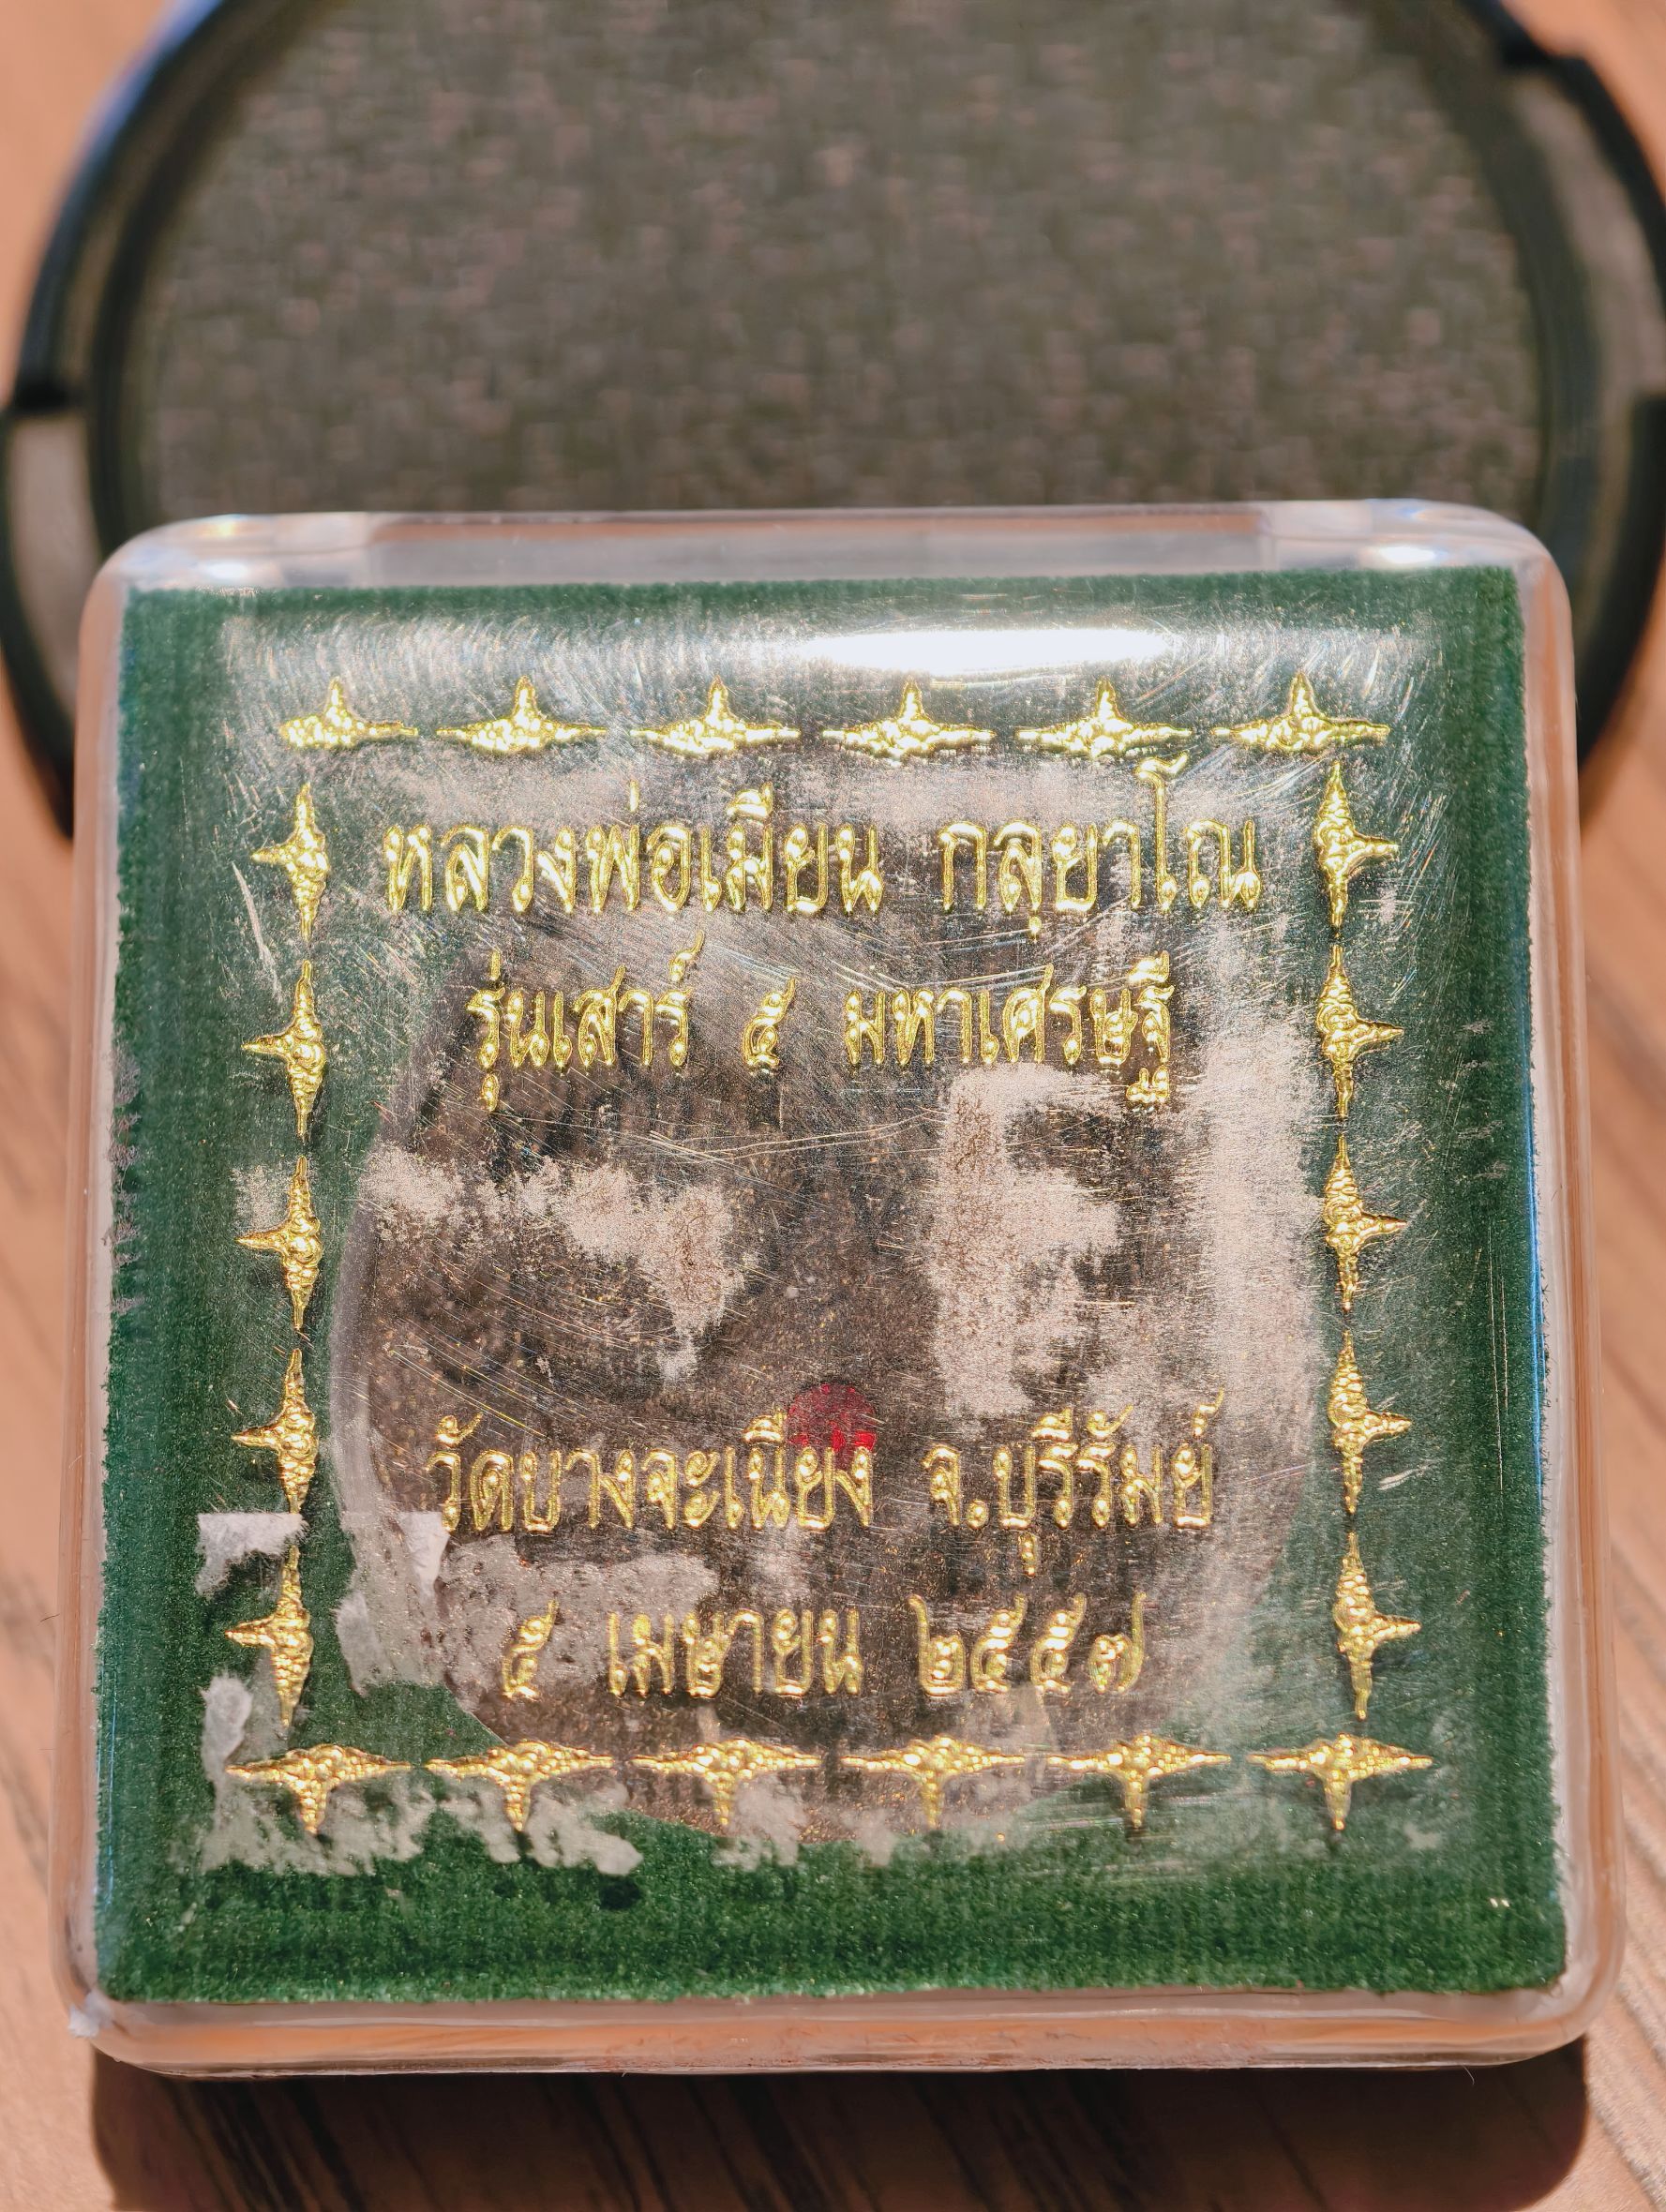 หลวงพ่อเมียน กลฺยาโณ
รุ่นเสาร์ ๕ มหาเศรษฐี
วัดบางจะเนียง จ.บุรีรัมย์
๕ เมษายน ๒๕๕๗